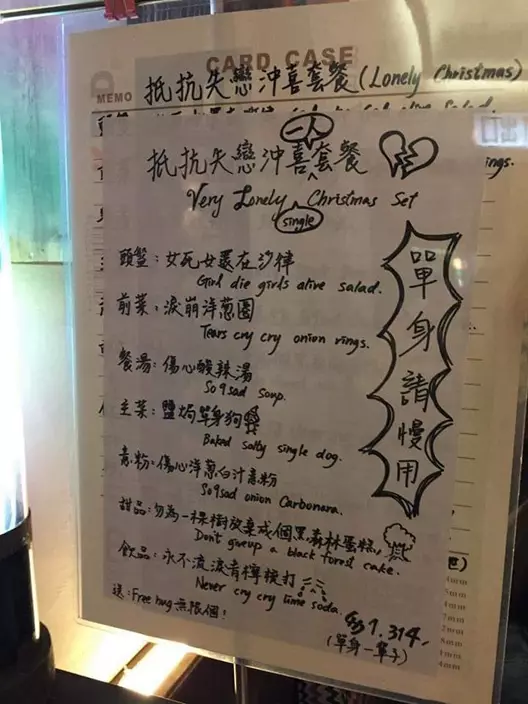 CARD CASE
MEMO
抵抗失戀沖喜套餐(Lonely Christmas)
一人
抵抗失戀沖喜套餐
Very Lonely Christmas Set
single
頭盤：女死女還在沙律
Girl die girls alive salad.
前菜：淚崩洋葱圈
Tears cry cry onion rings.
餐湯：傷心酸辣湯
So9sad soup.
主菜：鹽焗單身狗
Baked salty single dog.
意粉：傷心洋葱白汁意粉
So9sad onion Carbonara.
甜品：勿為一棵樹放棄成個黑森林蛋糕
Don't giveup a black forest cake.
飲品：永不流淚青檸梳打
Never cry cry lime soda.
送：Free hug 無限個！
$1,314.
(單身一輩子)
單身請慢用